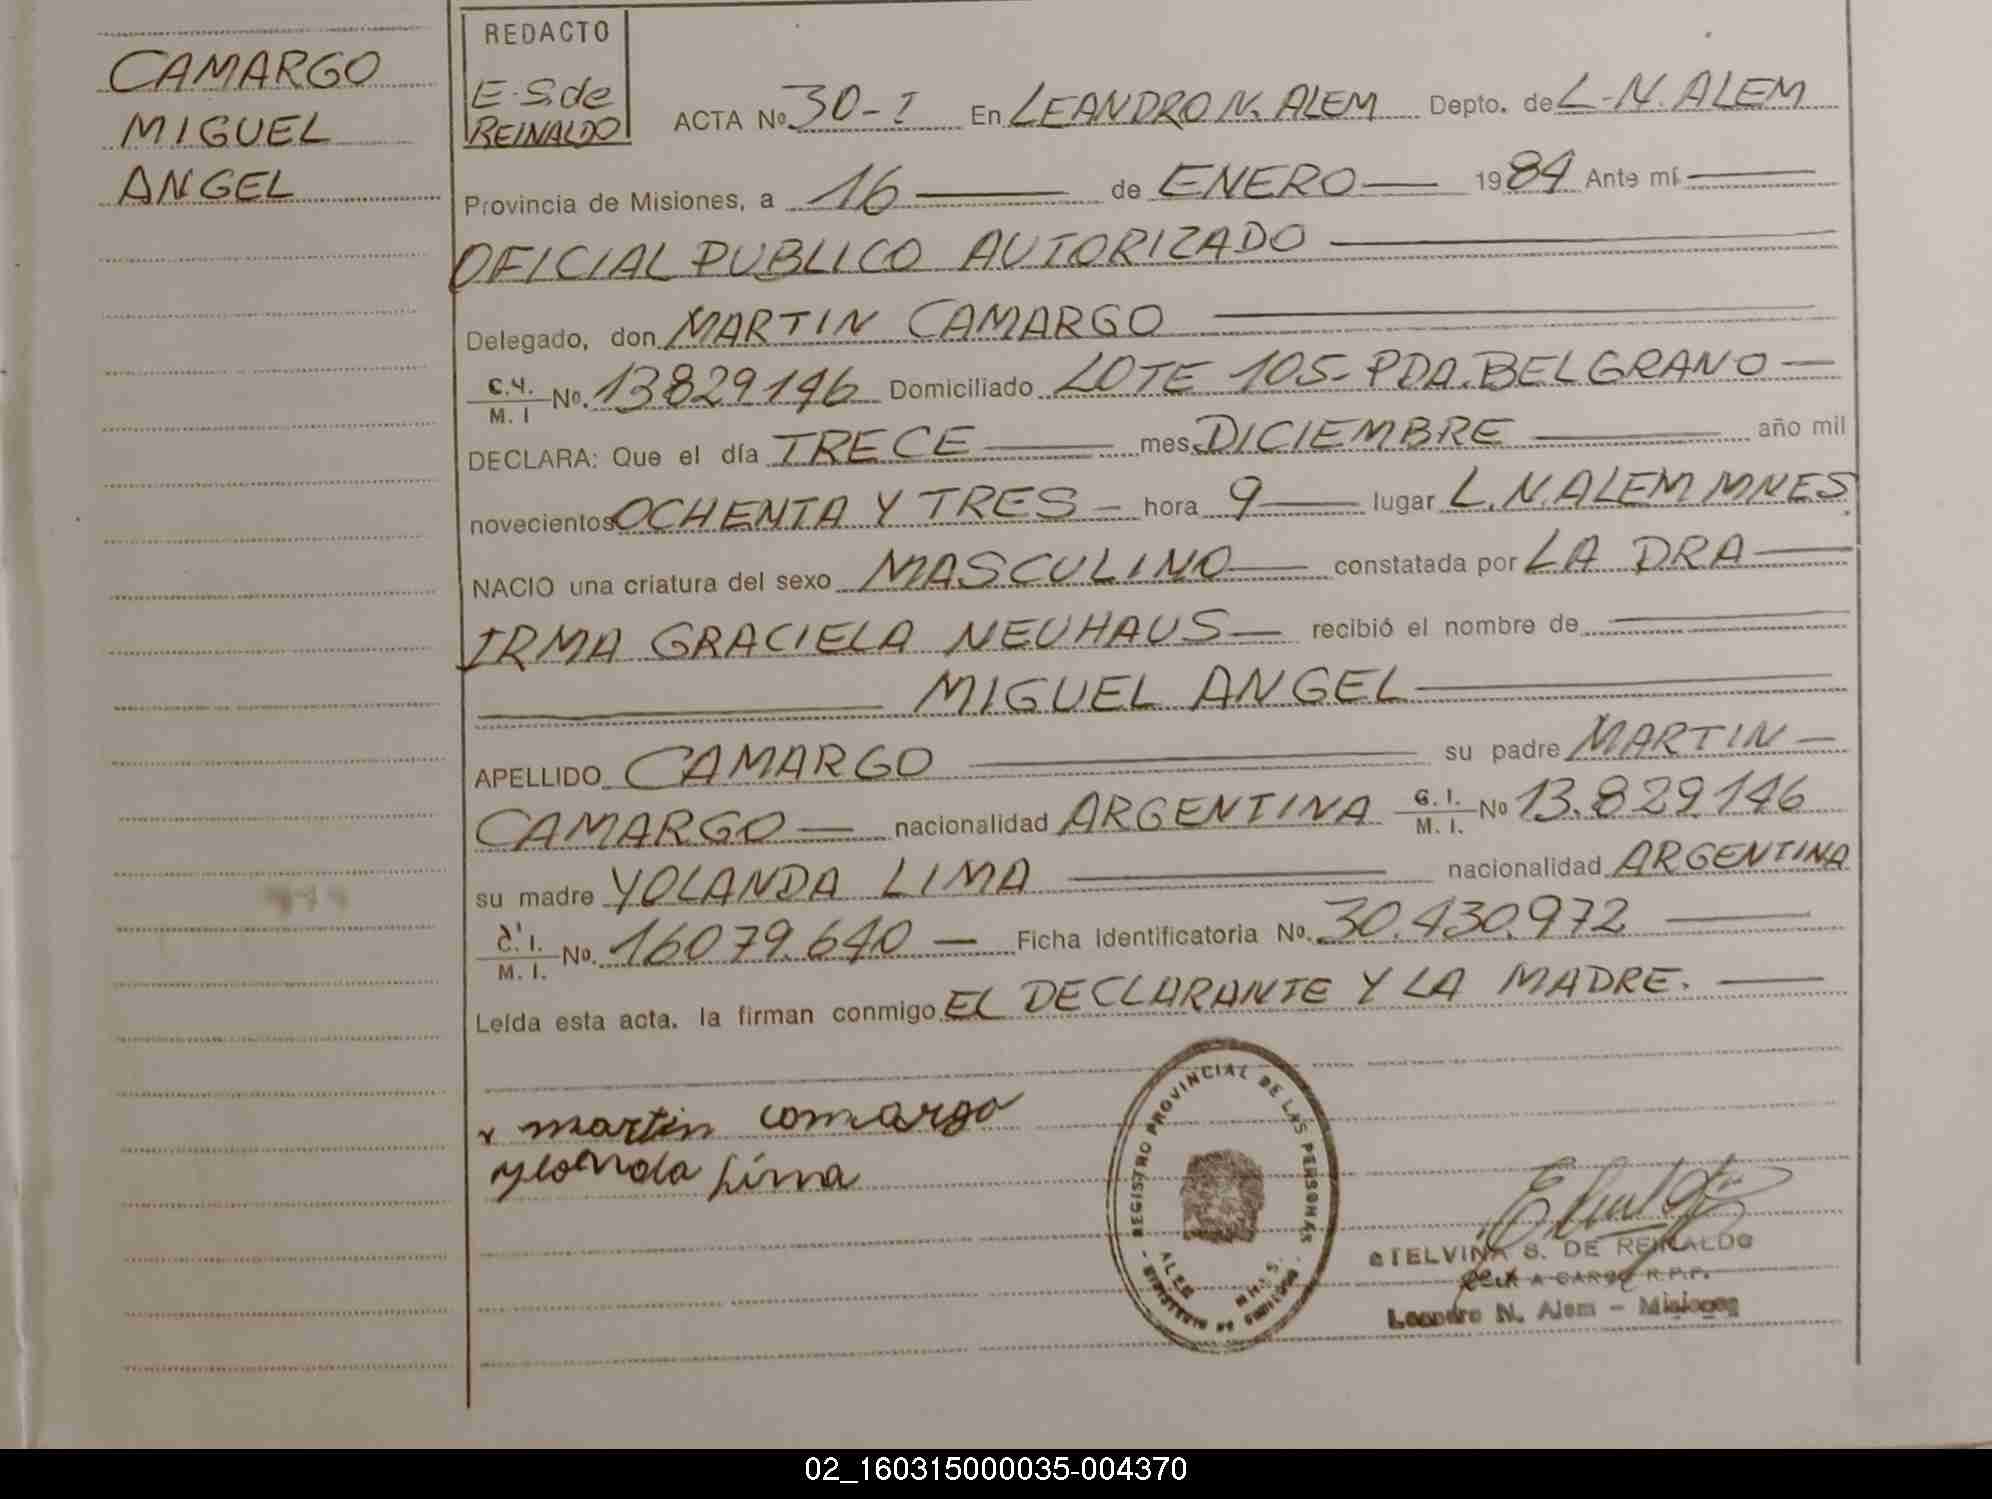 CAMARGO
MIGUEL
ANGEL
REDACTO
E. S. de
REINALDO
ACTA Nº 30-I En LEANDRO N. ALEM Depto. de L-N. ALEM
Provincia de Misiones, a 16 de ENERO 1984 Ante mí
OFICIAL PUBLICO AUTORIZADO
Delegado, don MARTIN CAMARGO
M. I Nº. 13829146 Domiciliado LOTE 105- PDA. BELGRANO
DECLARA: Que el día TRECE mes DICIEMBRE año mil
novecientos OCHENTA Y TRES hora 9 lugar L. N. ALEM MNES
NACIO una criatura del sexo MASCULINO constatada por LA DRA
IRMA GRACIELA NEUHAUS recibió el nombre de
MIGUEL ANGEL
APELLIDO CAMARGO su padre MARTIN
CAMARGO nacionalidad ARGENTINA C. I. M. I. Nº 13.829.146
su madre YOLANDA LIMA nacionalidad ARGENTINA
C. I. M. I. Nº. 16079.640 Ficha Identificatoria Nº. 30.430.972
Leída esta acta, la firman conmigo EL DECLARANTE Y LA MADRE.
martin comargo
yolanda Lima
REGISTRO PROVINCIAL DE LAS PERSONAS
ALEM
MNES.
MINISTERIO DE GOBIERNO
ETELVINA S. DE REINALDO
A CARGO R.P.P.
Leandro N. Alem - Misiones
02_160315000035-004370